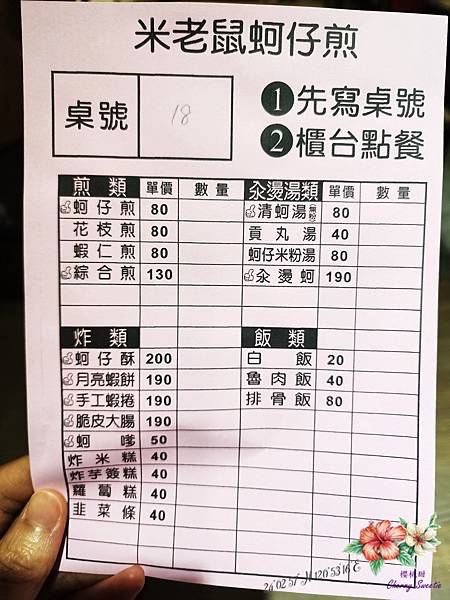 米老鼠蚵仔煎
桌號 18
❶先寫桌號
❷櫃台點餐
煎類 單價 數量
蚵仔煎 80
花枝煎 80
蝦仁煎 80
綜合煎 130
汆燙湯類 單價 數量
清蚵湯 80
貢丸湯 40
蚵仔米粉湯 80
汆燙蚵 190
炸類
蚵仔酥 200
月亮蝦餅 190
手工蝦捲 190
脆皮大腸 190
蚵嗲 50
炸米糕 40
炸芋簽糕 40
蘿蔔糕 40
韭菜條 40
飯類
白飯 20
魯肉飯 40
排骨飯 80
櫻桃甜
Cherry Sweetie